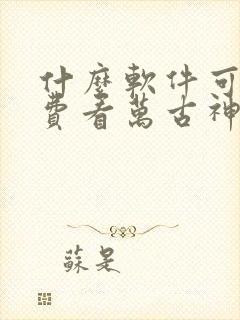 什麼軟件可
費看萬古神
蘇是